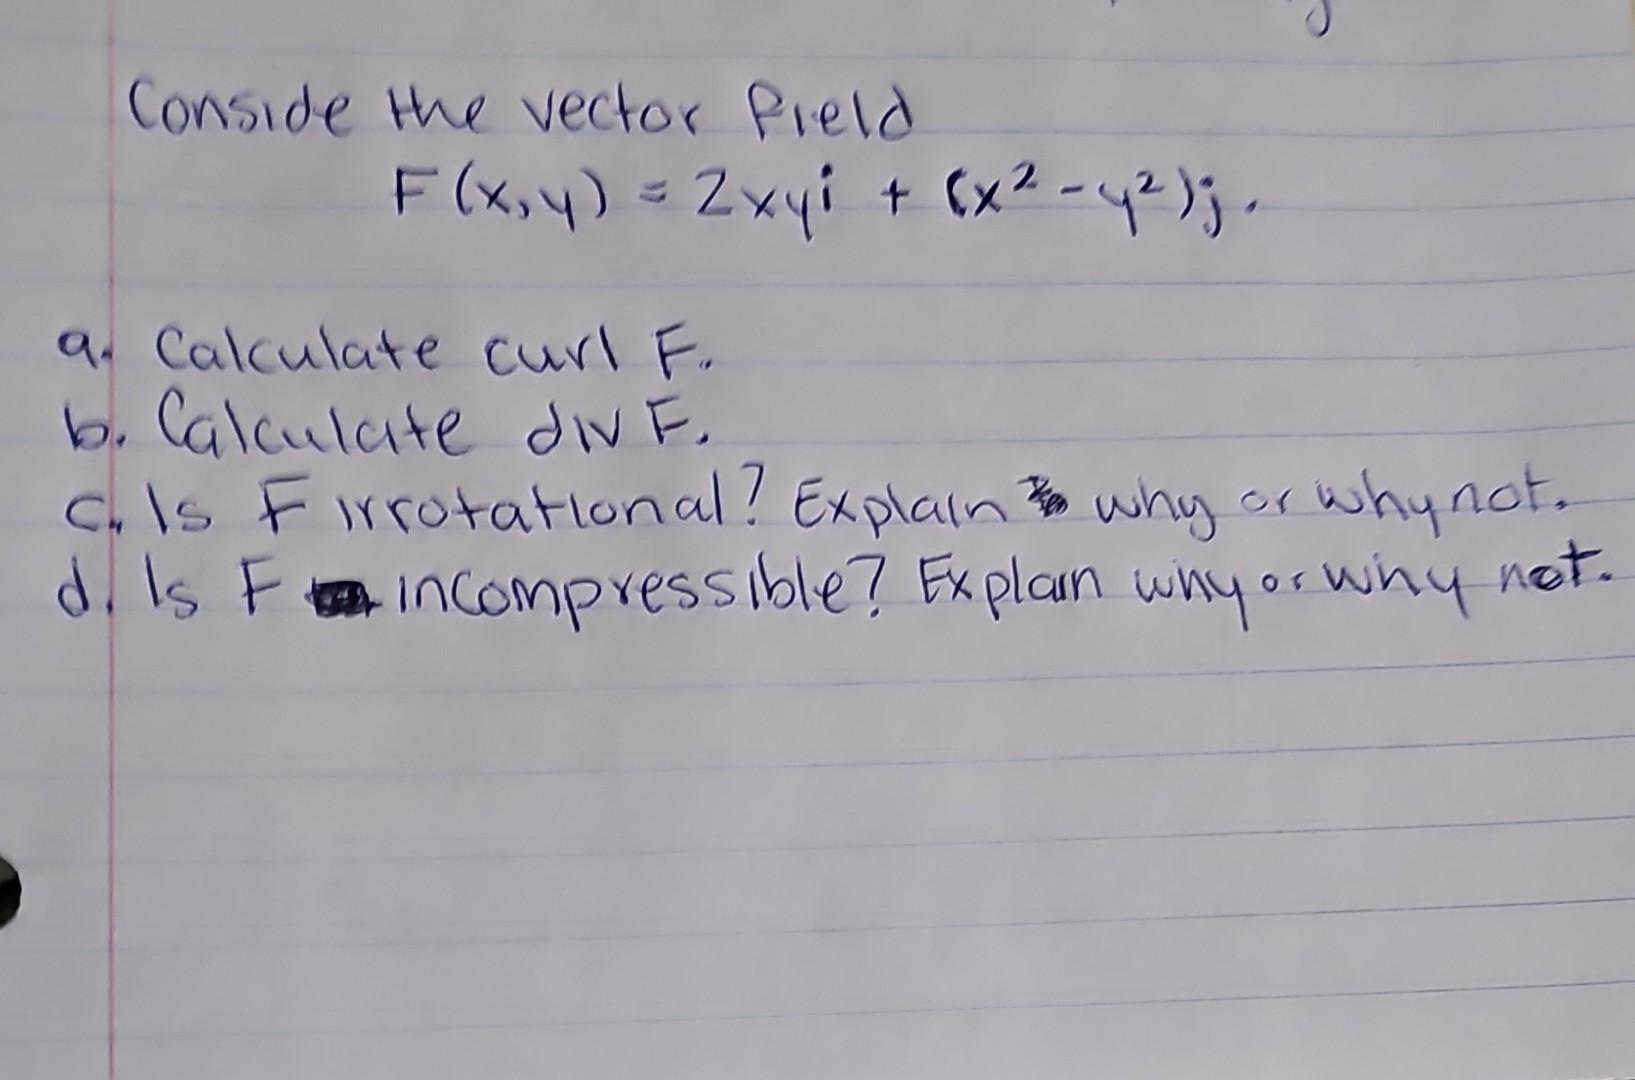 Conside the vector field
F(x,y) = 2xyi + (x² - y²)j.
a. Calculate curl F.
b. Calculate div F.
c. Is F irrotational? Explain why or why not.
d. Is F incompressible? Explain why or why not.